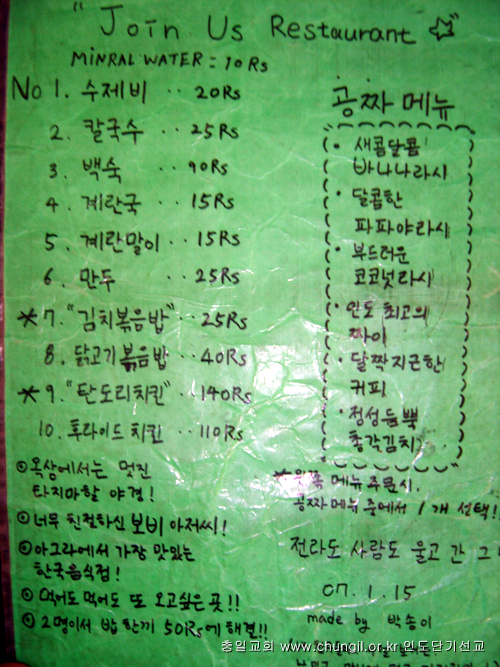 "Join Us Restaurant ☆
MINRAL WATER : 10 Rs
No 1. 수제비 ·· 20Rs
2. 칼국수 ·· 25Rs
3. 백숙 ·· 90Rs
4. 계란국 ·· 15Rs
5. 계란말이 ·· 15Rs
6. 만두 ·· 25Rs
*7. "김치볶음밥" ·· 25Rs
8. 닭고기볶음밥 ·· 40Rs
*9. "탄도리치킨" ·· 140Rs
10. 후라이드 치킨 ·· 110Rs
① 옥상에서는 멋진
타지마할 야경!
② 너무 친절하신 보비 아저씨!
③ 아그라에서 가장 맛있는
한국음식점!
④ 먹어도 먹어도 또 오고싶은 곳!!
⑤ 2명이서 밥 한끼 50Rs에 해결!!
공짜 메뉴
· 새콤달콤
바나나라시
· 달콤한
파파야라시
· 부드러운
코코넛라시
· 인도 최고의
짜이
· 달짝지근한
커피
· 정성듬뿍
총각김치
* 왼쪽 메뉴 주문시.
공짜메뉴 중에서 1개 선택!
전라도 사람도 울고 간 그
07. 1. 15
made by 박송이
충일교회 www.chungil.or.kr 인도단기선교